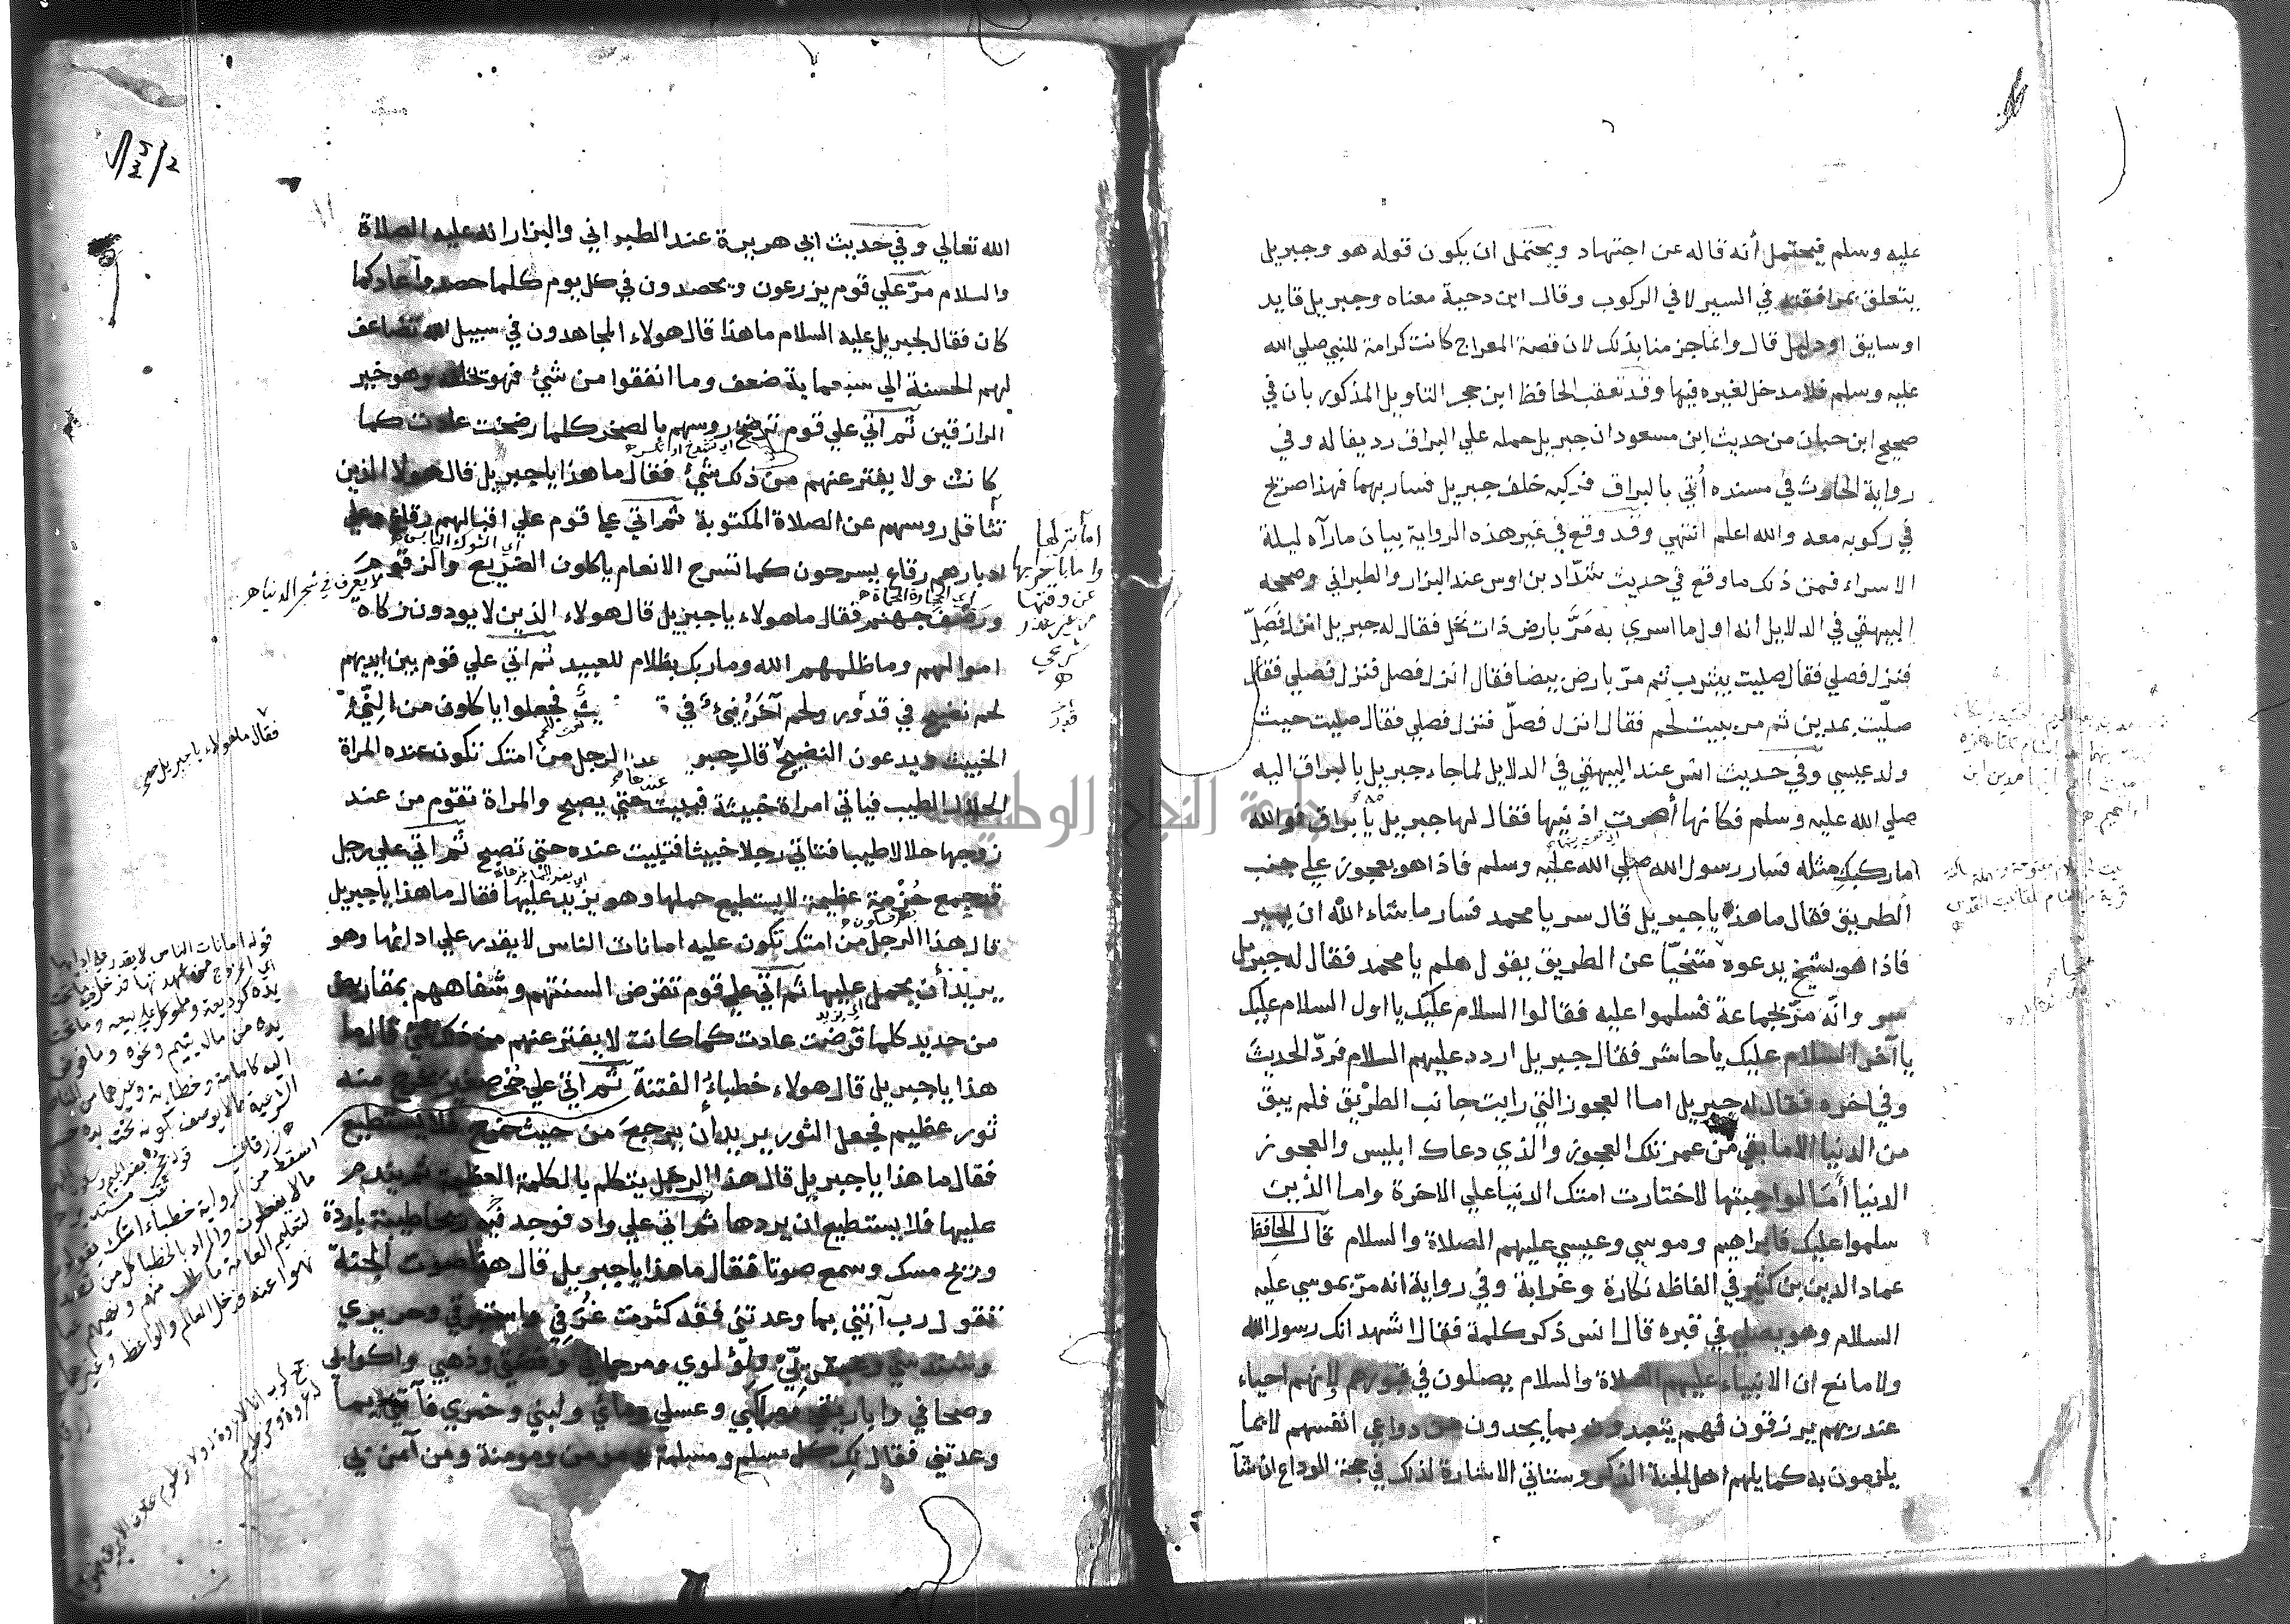 عليه وسلم فيحتمل أنه قاله عن اجتهاد ويحتمل ان يكون قوله هو وجبريل
يتعلق بمرافقته في السير لا في الركوب وقال ابن دحية معناه وجبريل قايد
او سايق او دليل قال وانما جزمنا بذلك لان قصة المعراج كانت كرامة للنبي صلي الله
عليه وسلم فلا مدخل لغيره فيها وقد تعقب الحافظ ابن حجر التاويل المذكور بان في
صحيح ابن حبان من حديث ابن مسعود ان جبريل حمله علي البراق رديفا له وفي
رواية الحارث في مسنده أتي بالبراق فركبه خلف جبريل فسار بهما فهذا صريح
في ركوبه معه والله اعلم انتهي وقد وقع في غير هذه الرواية بيان ما رآه ليلة
الاسراء فمن ذلك ما وقع في حديث شدّاد بن اوس عند البزار والطبراني وصححه
البيهقي في الدلايل انه اول ما اسري به مَرَّ بارض ذات نخل فقال له جبريل انزل فَصَلِّ
فنزل فصلي فقال صليت بيثرب ثم مرّ بارض بيضا فقال انزل فصل فنزل فصلي فقال
صلّيت بمدين ثم مر ببيت لحم فقال انزل فصلّ فنزل فصلي فقال صليت حيث
ولد عيسي وفي حديث انس عند البيهقي في الدلايل لما جاء جبريل بالبراق اليه
صلي الله عليه وسلم فكانها أصرت اذنيها فقال لها جبريل يا براق فوالله
ما ركبك مثله فسار رسول الله صلي الله عليه وسلم فاذا هو بعجوز علي جنب
الطريق فقال ما هذه يا جبريل قال سر يا محمد فسار ما شاء الله ان يسير
فاذا هو بشيخ يدعوه متنحّيا عن الطريق يقول هلم يا محمد فقال له جبريل
سر وانّه مرّ بجماعة فسلموا عليه فقالوا السلام عليك يا اول السلام عليك
يا آخر السلام عليك يا حاشر فقال جبريل اردد عليهم السلام فردّ الحديث
وفي اخره فقال له جبريل اما العجوز التي رايت جانب الطريق فلم يبق
من الدنيا الا ما بقي من عمر تلك العجوز والذي دعاك ابليس والعجوز
الدنيا أمَا لو اجبتها لاختارت امتك الدنيا علي الاخرة واما الذين
سلموا عليك فابراهيم وموسي وعيسي عليهم الصلاة والسلام قال الحافظ
عماد الدين بن كثير في الفاظه نكارة وغرابة وفي رواية انه مرّ بموسي عليه
السلام وهو يصلي في قبره قال انس ذكر كلمة فقال اشهد انك رسول الله
ولا مانع ان الانبياء عليهم الصلاة والسلام يصلون في قبورهم لانهم احياء
عند ربهم يرزقون فهم يتعبدون بما يجدون من دواعي انفسهم لا بما
يلزمون به كما يلهم اهل الجنة الذكر وستاتي الاشارة لذلك في حجة الوداع ان شآ
الله تعالي وفي حديث ابي هريرة عند الطبراني والبزار انه عليه الصلاة
والسلام مرّ علي قوم يزرعون ويحصدون في كل يوم كلما حصدوا عاد كما
كان فقال لجبريل عليه السلام ما هذا قال هولاء المجاهدون في سبيل الله تضاعف
لهم الحسنة الي سبعماية ضعف وما انفقوا من شيئ فهو يخلفه وهو خير
الرازقين ثم اتي علي قوم ترضخ روسهم بالصخر كلما رضخت عادت كما
كانت ولا يفتر عنهم من ذلك شيئ فقال ما هذا يا جبريل قال هولا الذين
تثاقل روسهم عن الصلاة المكتوبة ثم اتي علي قوم علي اقبالهم رقاع وعلي
ادبارهم رقاع يسرحون كما تسرح الانعام ياكلون الضريع والزقوم
ورضف جهنم فقال ما هولاء يا جبريل قال هولاء الذين لا يودون زكاة
اموالهم وما ظلمهم الله وما ربك بظلام للعبيد ثم اتي علي قوم بين ايديهم
لحم نضيج في قدور ولحم آخر نيئ في فجعلوا ياكلون من النيّئ
الخبيث ويدعون النضيج قال جبر هذا الرجل من امتك تكون عنده المراة
الحلال الطيب فياتي امراة خبيثة فيبيت حتي يصبح والمراة تقوم من عند
زوجها حلالا طيبا فتاتي رجلا خبيثا فتبيت عنده حتي تصبح ثم اتي علي رجل
قد جمع حُزْمة عظيمة لا يستطيع حملها وهو يزيد عليها فقال ما هذا يا جبريل
قال هذا الرجل من امتك تكون عليه امانات الناس لا يقدر علي ادائها وهو
يريد أن يحمل عليها ثم اتي علي قوم تقرض السنتهم وشفاههم بمقاريض
من حديد كلما قرضت عادت كما كانت لا يفتر عنهم من ذلك شئ قال ما
هذا يا جبريل قال هولاء خطباءُ الفتنة ثم اتي علي جُحْر صغير يخرج منه
ثور عظيم فجعل الثور يريد أن يرجع من حيث خرج فلا يستطيع
فقال ما هذا يا جبريل قال هذا الرجل يتكلم بالكلمة العظيمة ثم يندم
عليها فلا يستطيع ان يردها ثم اتي علي واد فوجد فيه ريحا طيبة باردة
وريح مسك وسمع صوتا فقال ما هذا يا جبريل قال هذا صوت الجنة
تقول رب آتني بما وعدتني فقد كثرت غُرَفي واستبرقي وحريري
وسندسي وعبقريّ ولؤلوي ومرجاني وفضتي وذهبي واكوابي
وصحافي واباريقي ومراكبي وعسلي ومائي ولبني وخمري فآتني بما
وعدتني فقال لكِ كل مسلم ومسلمة ومومن ومومنة ومن آمن بي
اما بتركها
واما باخراجها
عن وقتها
من غير عذر
اي الشوك اليابس
لا يعرف في شجر الدنيا هـ
اي الحجارة المحماة
فقال ما هولاء يا جبريل صح
قوله امانات الناس لا يقدر علي ادايها
جامعة النجاح الوطنية